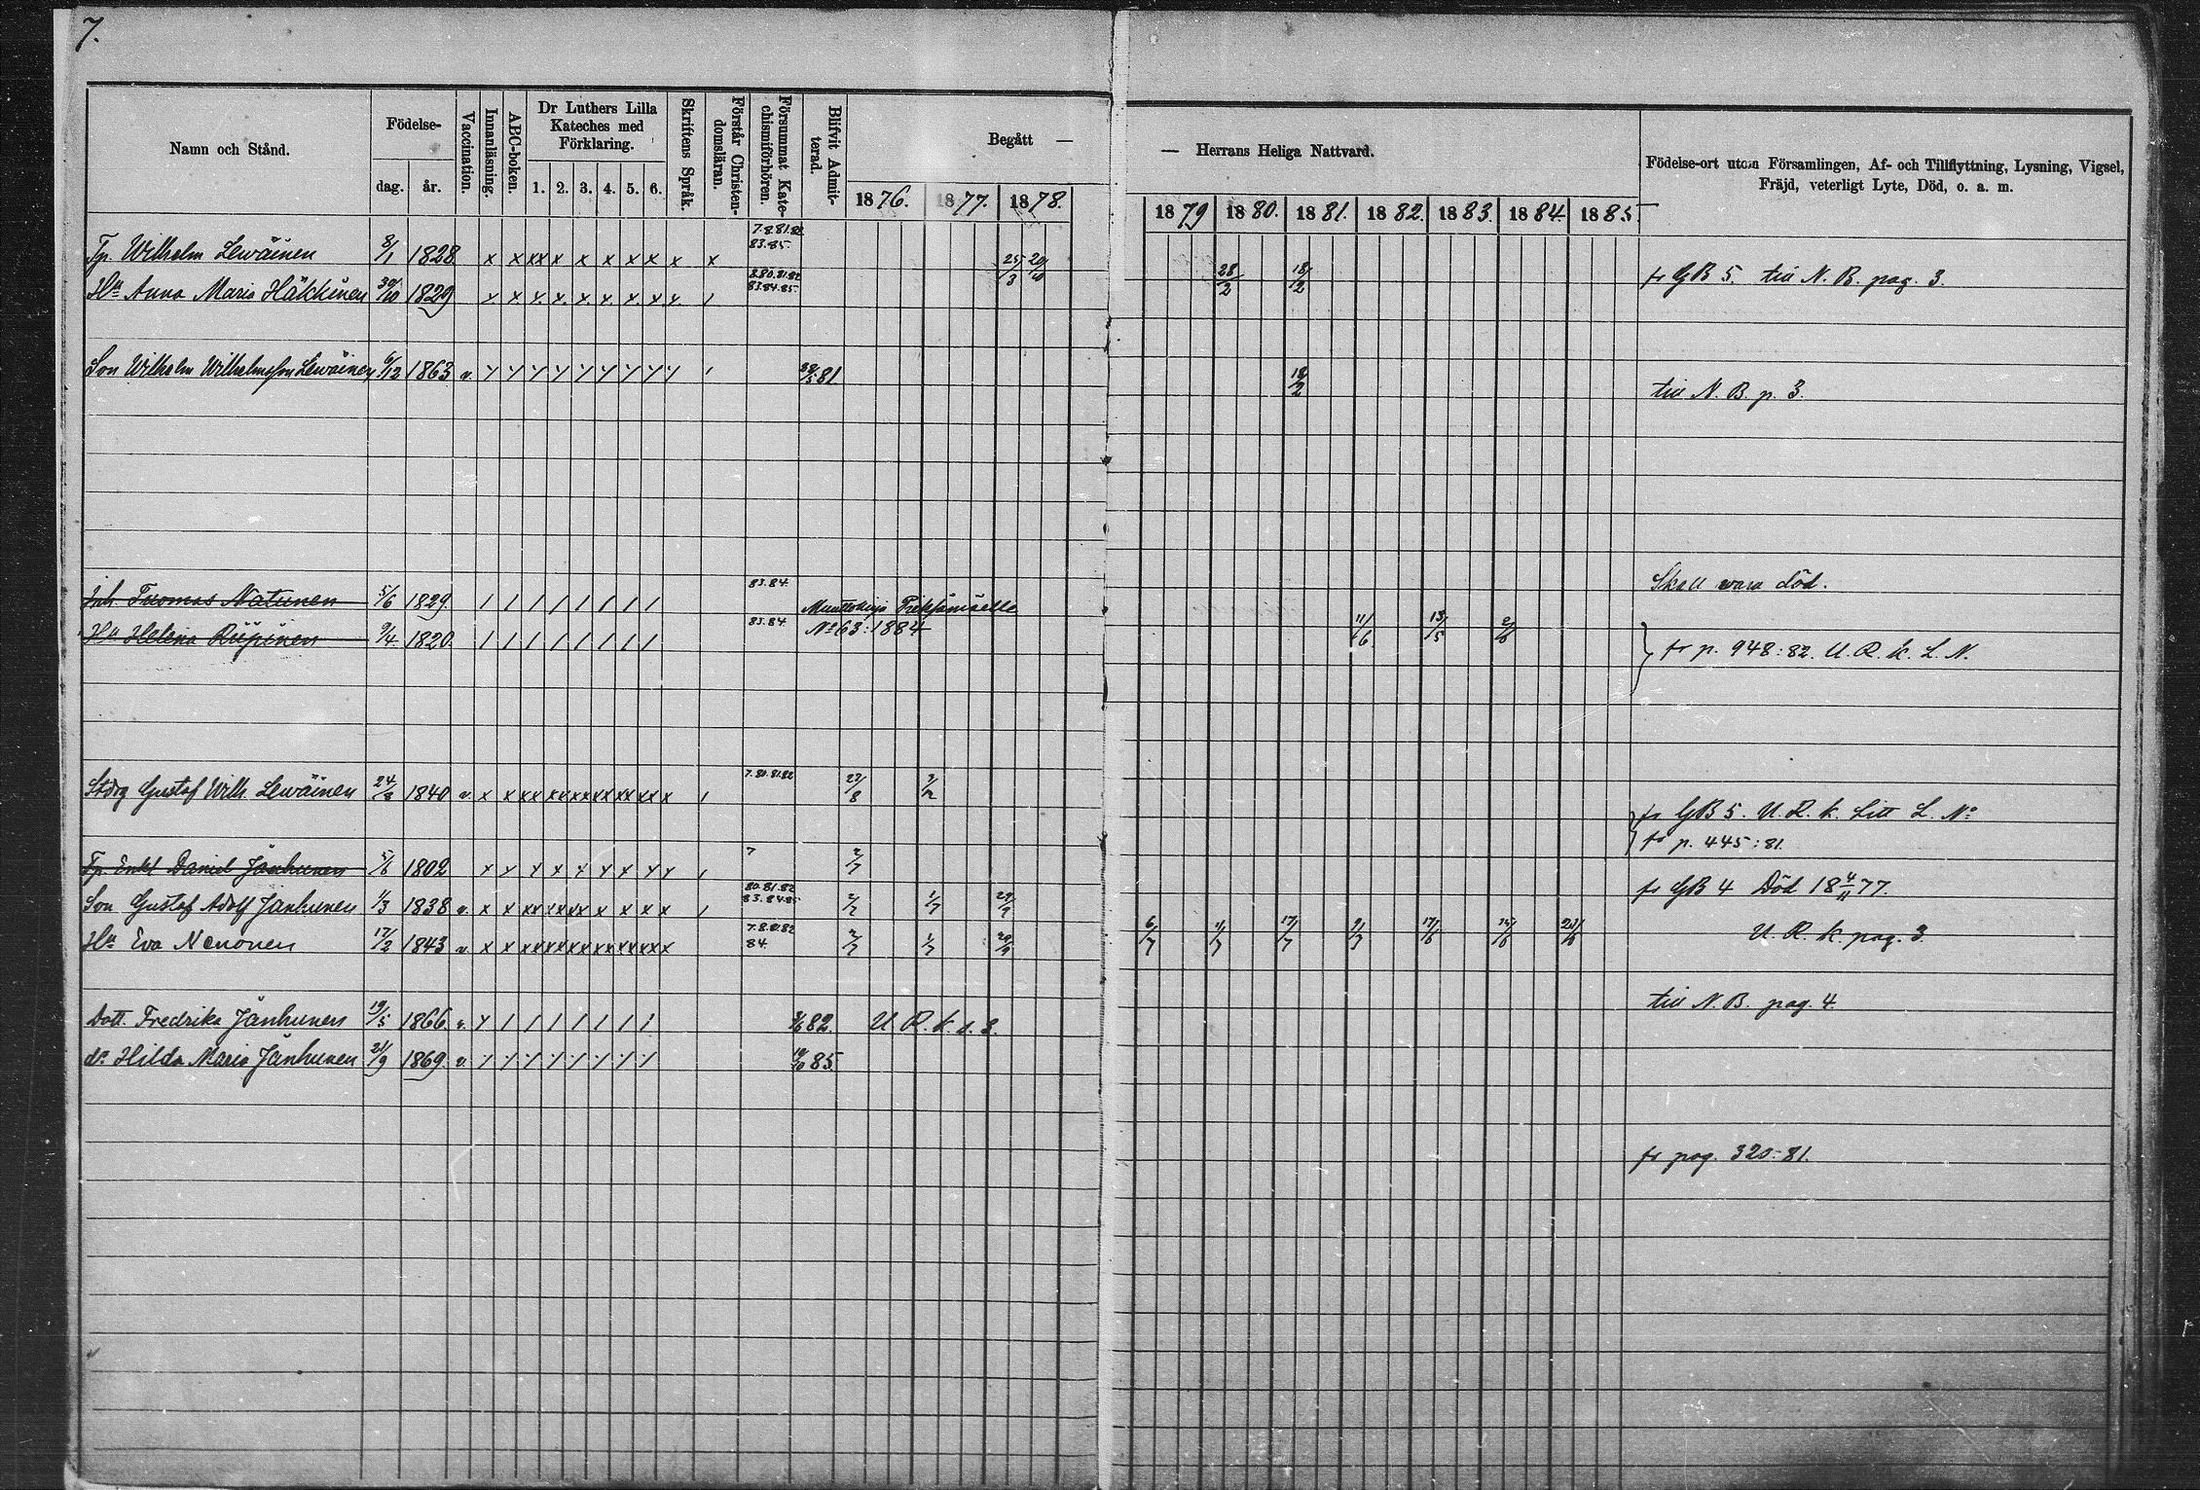 7.
Namn och Stånd. Födelse- dag. år. Vaccination. Innanläsning. ABC-boken. Dr Luthers Lilla Kateches med Förklaring. 1. 2. 3. 4. 5. 6. Skriftens Språk. Förstår Christendomsläran. Försummat Katechismiförhören. Blifvit Admitterad. Begått — 1876. 1877. 1878.
— Herrans Heliga Nattvard. 1879 1880. 1881. 1882. 1883. 1884. 1885. Födelse-ort utom Församlingen, Af- och Tillflyttning, Lysning, Vigsel, Fräjd, veterligt Lyte, Död, o. a. m.
7.8.81.82
83.85.
Tp. Wilhelm Lewäinen 8/1 1828 x x xx x x x x x x x 25/3 20/10
8.80.81.82
83.84.85.
Hu Anna Maria Häkkinen 30/10 1829 x x x x x x x x x / 28/2 18/2 fr GB 5. till N. B. pag. 3.
Son Wilhelm Wilhelmsson Lewäinen 6/12 1863 v. 81 18/2
till N. B. p. 3.
83.84. Skall vara död.
Inh. Tuomas Natunen 5/6 1829. / / / / / / / /
Hu Helena Riipinen 9/4 1820. / / / / / / / / 83.84 No 63:1884 11/6 13/5
fr p. 948:82. U. R. k. L. N.
7.80.81.82
Gustaf Wilh. Lewäinen 24/8 1840 v. 23/8
fr GB 5. U. R. k. Litt L. No
fr p. 445:81.
Tp. Enkl Daniel Jänhunen 1802 7 2/7
fr GB 4 Död 18 4/11 77.
80.81.82
83.84.85
Son Gustaf Adolf Jänhunen 1/3 1838 v. 2/7 1/7 29/9
7.8.81.82
84.
Hu Eva Nenonen 17/2 1843 v 2/7 1/7 29/9 6/7 17/7 17/6 U. R. k. pag. 3.
till N. B. pag. 4
Dott. Fredrika Jänhunen 19/5 1866. v. 82. U. R. k. s. 3.
do Hilda Maria Jänhunen 21/9 1869. v. 85.
fr pag. 320:81.